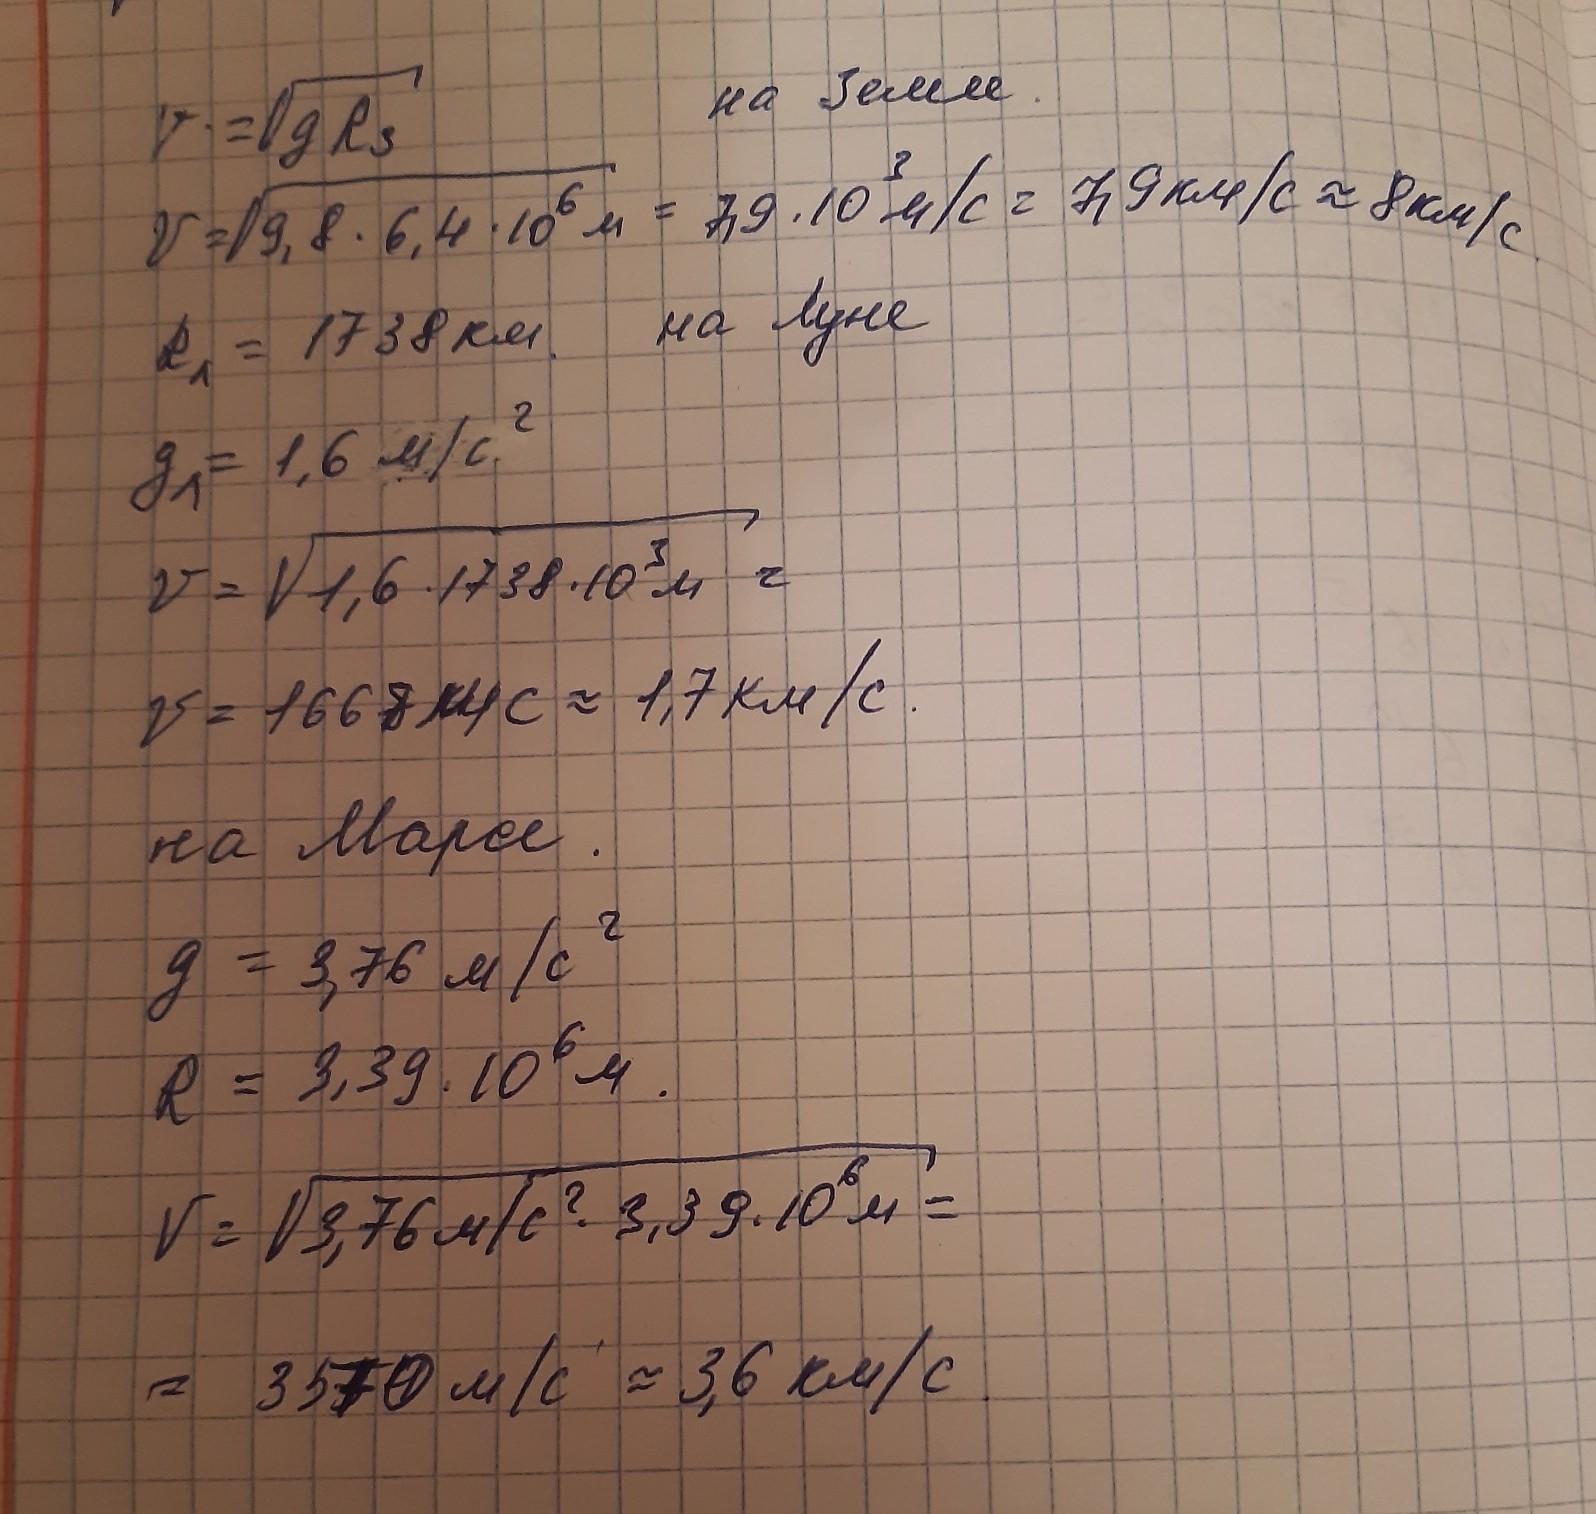 v = √gRз на Земле.
v = √9,8 · 6,4 · 10⁶ м = 7,9 · 10³ м/с = 7,9 км/с ≈ 8 км/с.
Rл = 1738 км. на Луне
gл = 1,6 м/с²
v = √1,6 · 1738 · 10³ м =
v = 1667 м/с ≈ 1,7 км/с.
на Марсе.
g = 3,76 м/с²
R = 3,39 · 10⁶ м.
V = √3,76 м/с² · 3,39 · 10⁶ м =
= 3570 м/с ≈ 3,6 км/с.